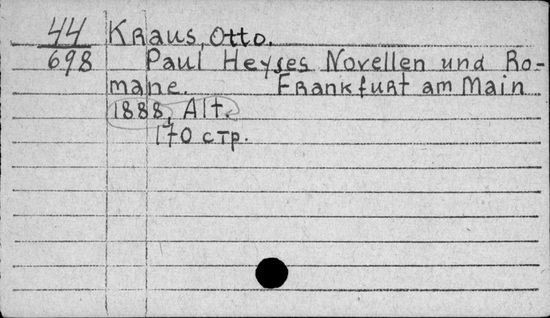 44 Kraus, Otto.
698 Paul Heyses Novellen und Ro-
mane. Frankfurt am Main
1888, Alt.
170 стр.